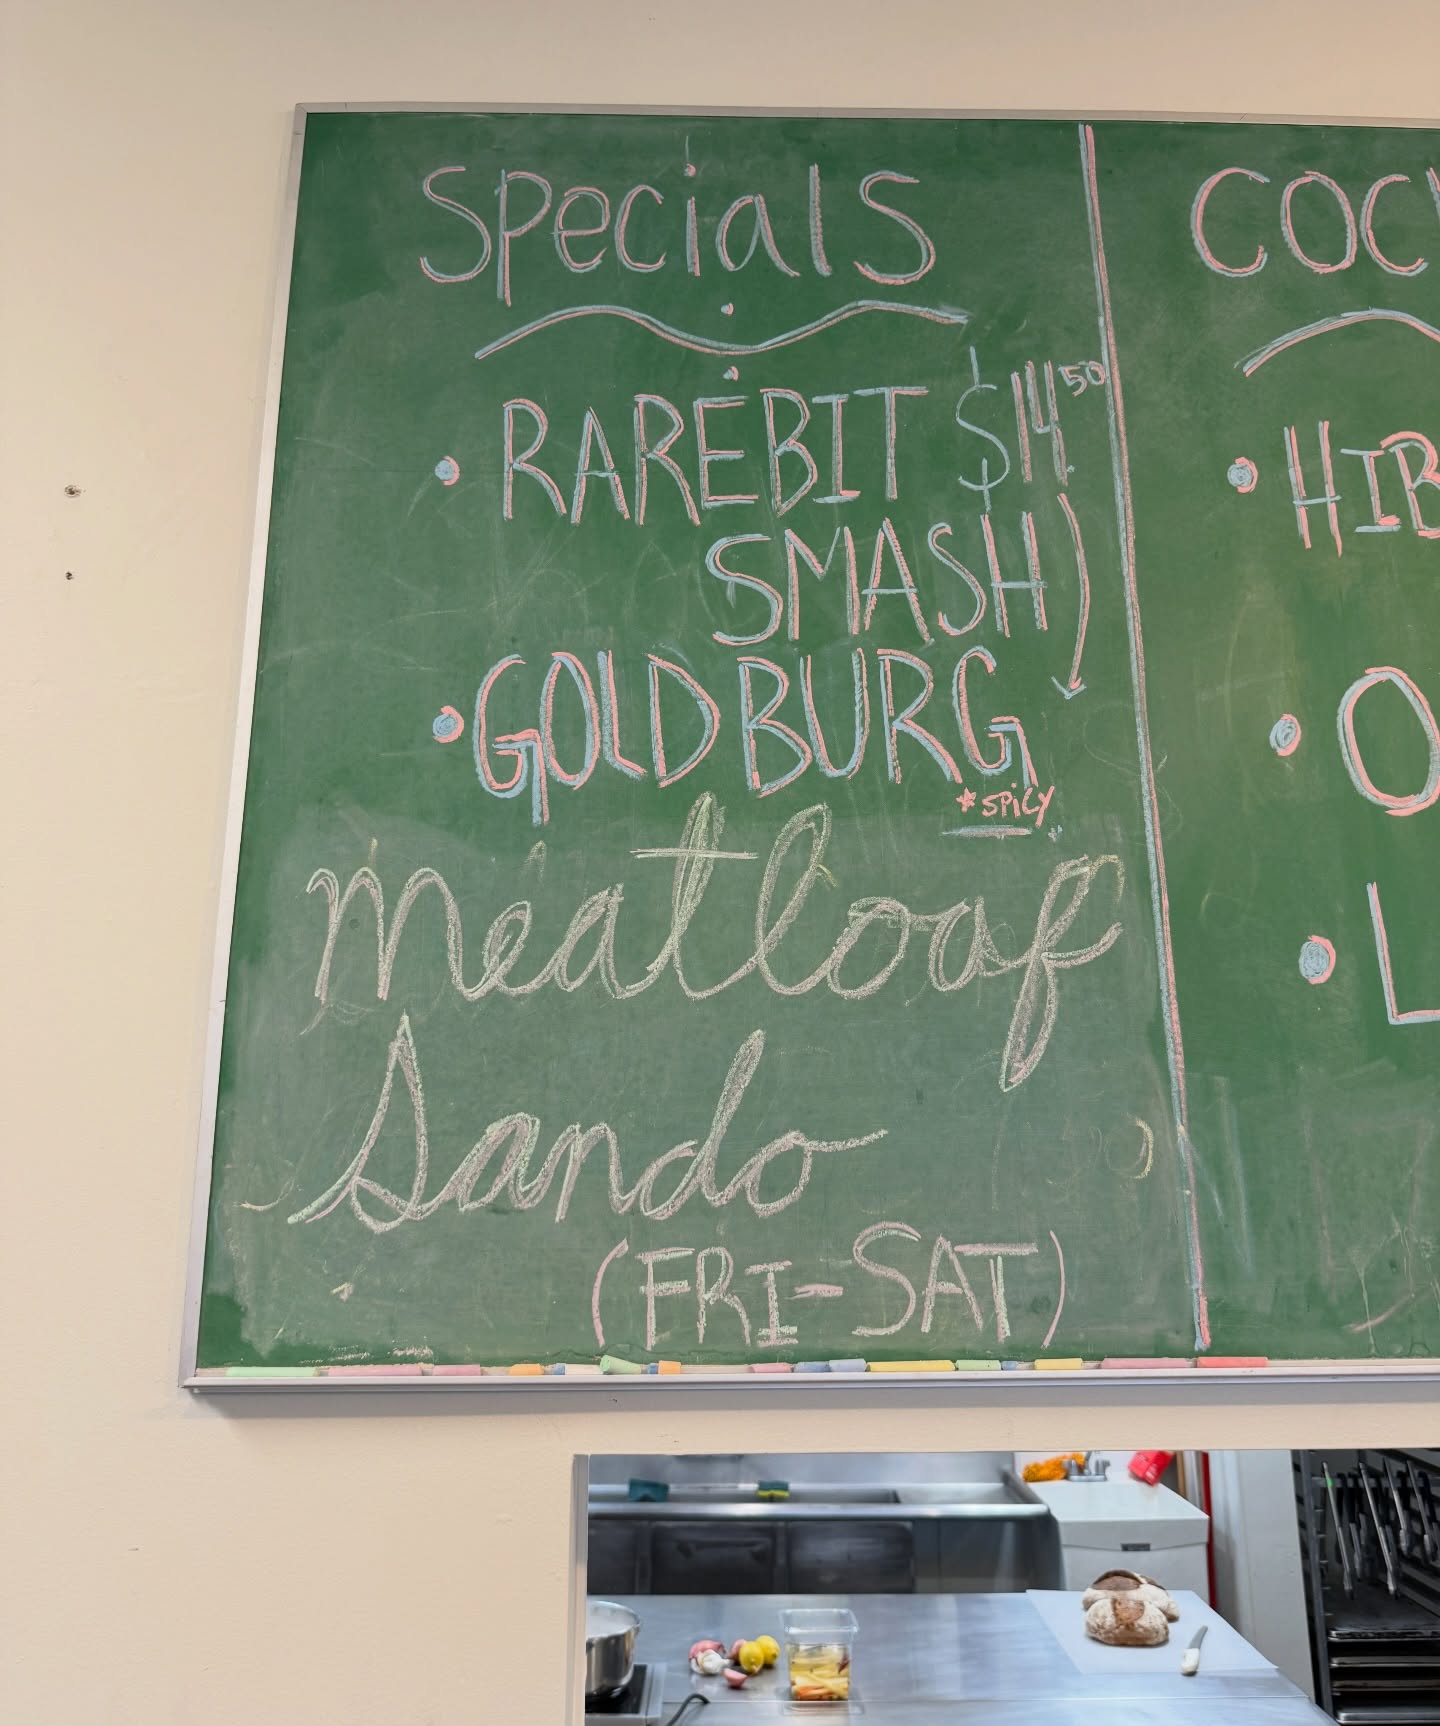 Specials
• RAREBIT $14.50
SMASH
• GOLDBURG
*SPICY
Meatloaf
Sando
(FRI-SAT)
COC
• HIB
• O
• L